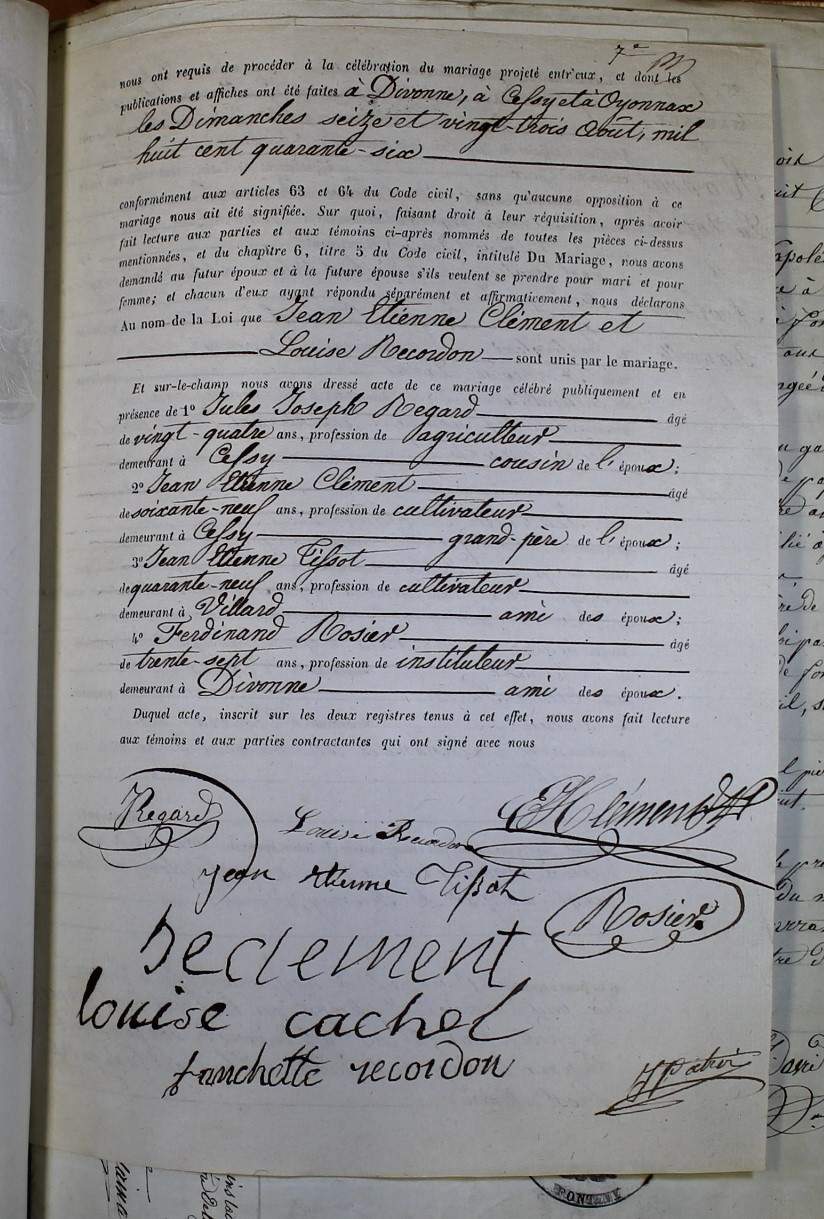 7e
nous ont requis de procéder à la célébration du mariage projeté entr'eux, et dont les
publications et affiches ont été faites à Divonne, à Cessy et à Oyonnax
les Dimanches seize et vingt-trois Août, mil
huit cent quarante-six
conformément aux articles 63 et 64 du Code civil, sans qu'aucune opposition à ce
mariage nous ait été signifiée. Sur quoi, faisant droit à leur réquisition, après avoir
fait lecture aux parties et aux témoins ci-après nommés de toutes les pièces ci-dessus
mentionnées, et du chapitre 6, titre 5 du Code civil, intitulé Du Mariage, nous avons
demandé au futur époux et à la future épouse s'ils veulent se prendre pour mari et pour
femme; et chacun d'eux ayant répondu séparément et affirmativement, nous déclarons
Au nom de la Loi que Jean Etienne Clément et
Louise Recordon sont unis par le mariage.
Et sur-le-champ nous avons dressé acte de ce mariage célébré publiquement et en
présence de 1º Jules Joseph Regard âgé
de vingt-quatre ans, profession de agriculteur
demeurant à Cessy cousin de l'époux;
2º Jean Etienne Clément âgé
de soixante-neuf ans, profession de cultivateur
demeurant à Cessy grand-père de l'époux;
3º Jean Etienne Tissot âgé
de quarante-neuf ans, profession de cultivateur
demeurant à Villard ami des époux;
4º Ferdinand Rosier âgé
de trente-sept ans, profession de instituteur
demeurant à Divonne ami des époux.
Duquel acte, inscrit sur les deux registres tenus à cet effet, nous avons fait lecture
aux témoins et aux parties contractantes qui ont signé avec nous
Regard
Louise Recordon
Clément
jean etienne Tissot
Rosier
je clement
louise cachel
fanchette recordon